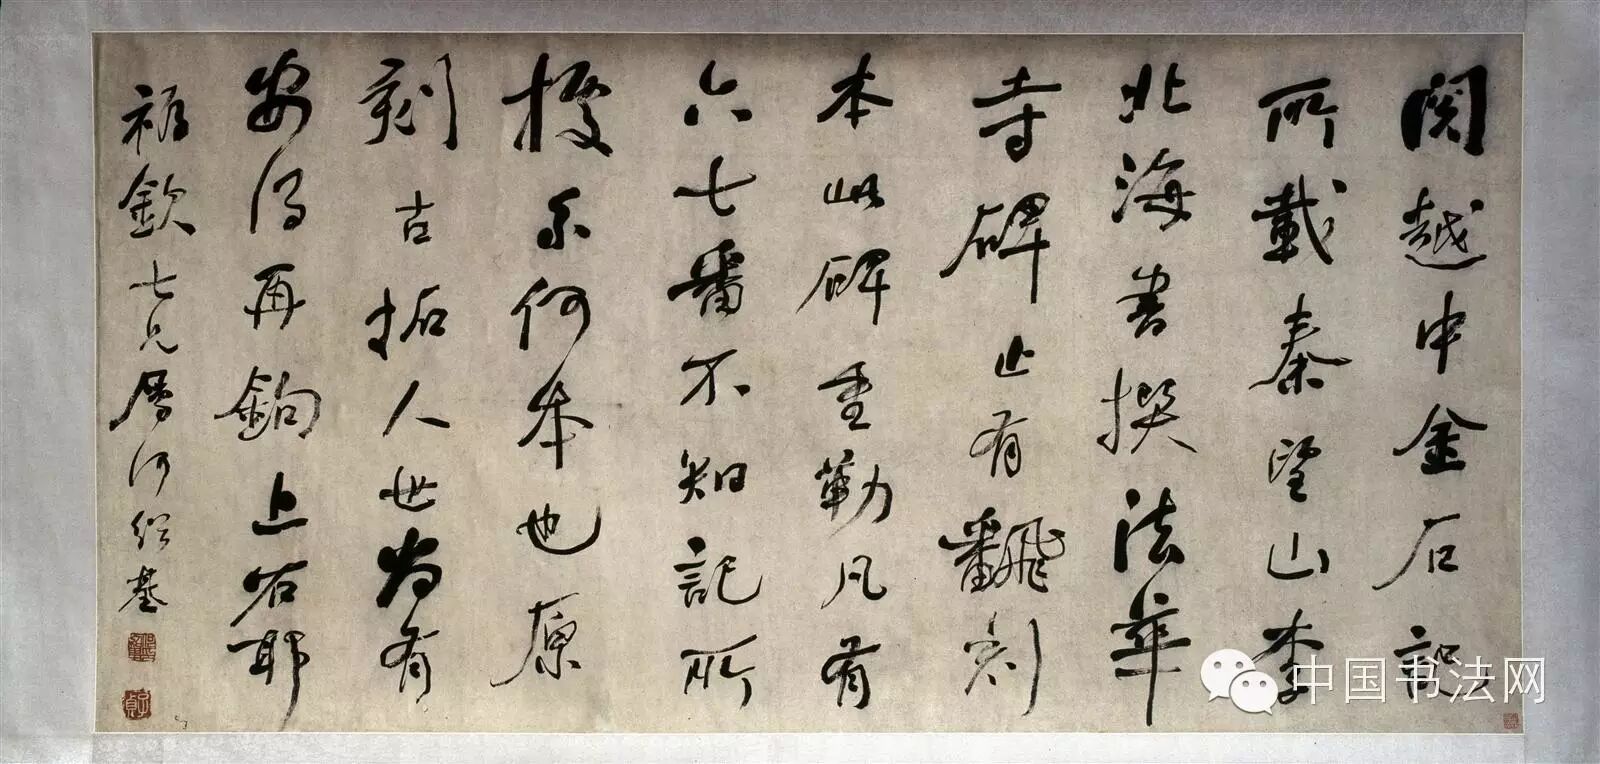 閱越中金石記
所載秦望山李
北海書撰法華
寺碑止有翻刻
本此碑重勒凡有
六七番不知記所
據系何本也原
刻古拓人世尚有
安得再鈎上石耶
欽七兄屬何紹基
子貞
中国书法网